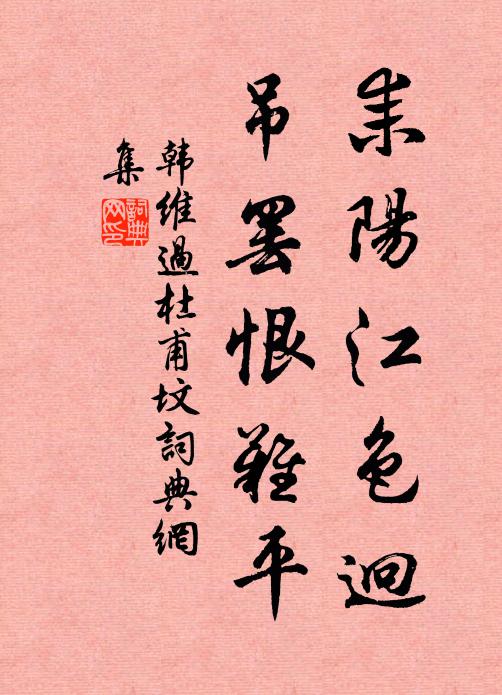 耒陽江色迥
吊罢恨難平
韩维過杜甫坟詞典網
集
詞典
网印